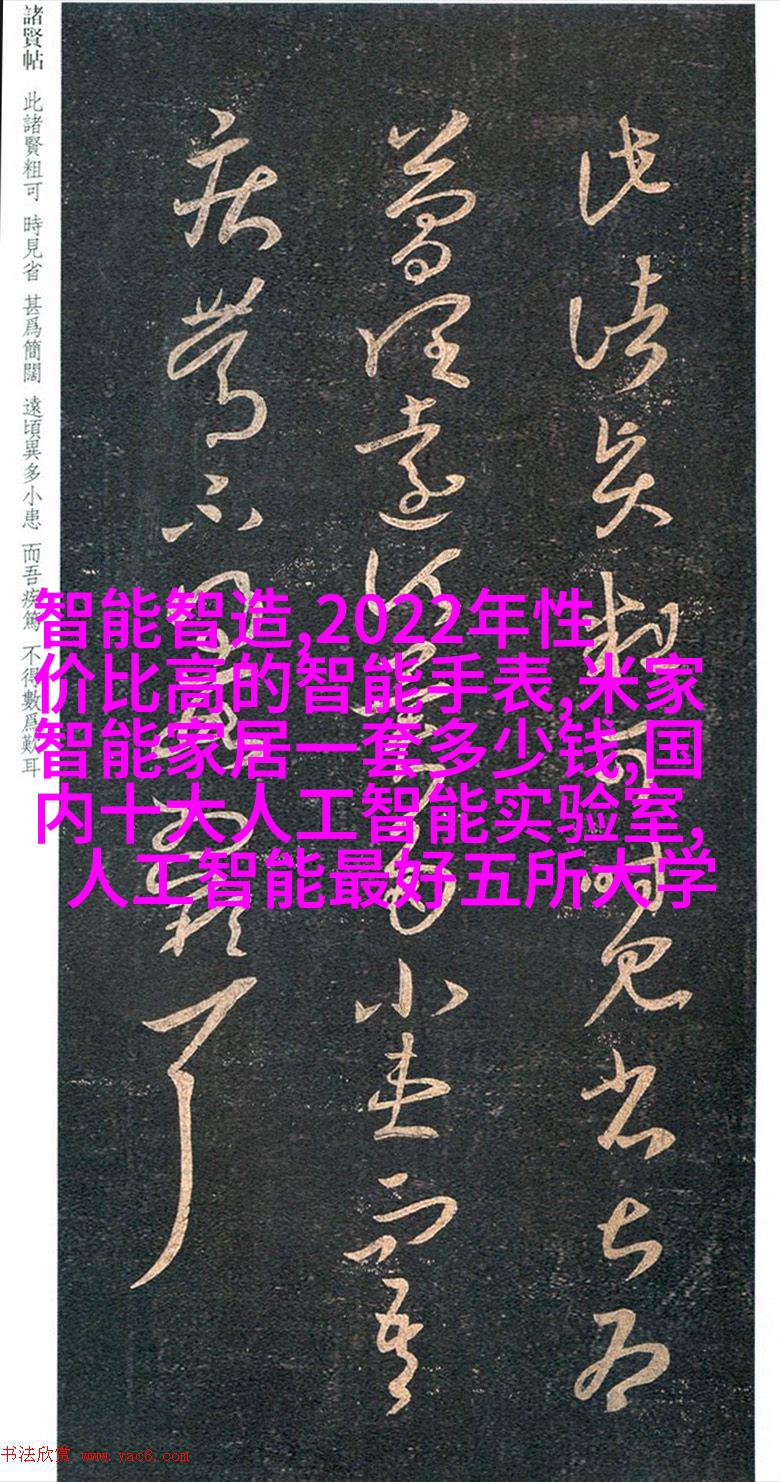 諸賢帖 此諸賢粗可 時見省 甚爲簡闊 遠頃異多小患 而吾疾篤 不得數爲歎耳
此諸賢粗可時見省甚爲
簡闊遠頃異多小患而吾
疾篤不得數爲歎耳
智能智造,2022年性
价比高的智能手表,米家
智能家居一套多少钱,国
内十大人工智能实验室,
人工智能最好五所大学
书法欣赏 www.yac8.com